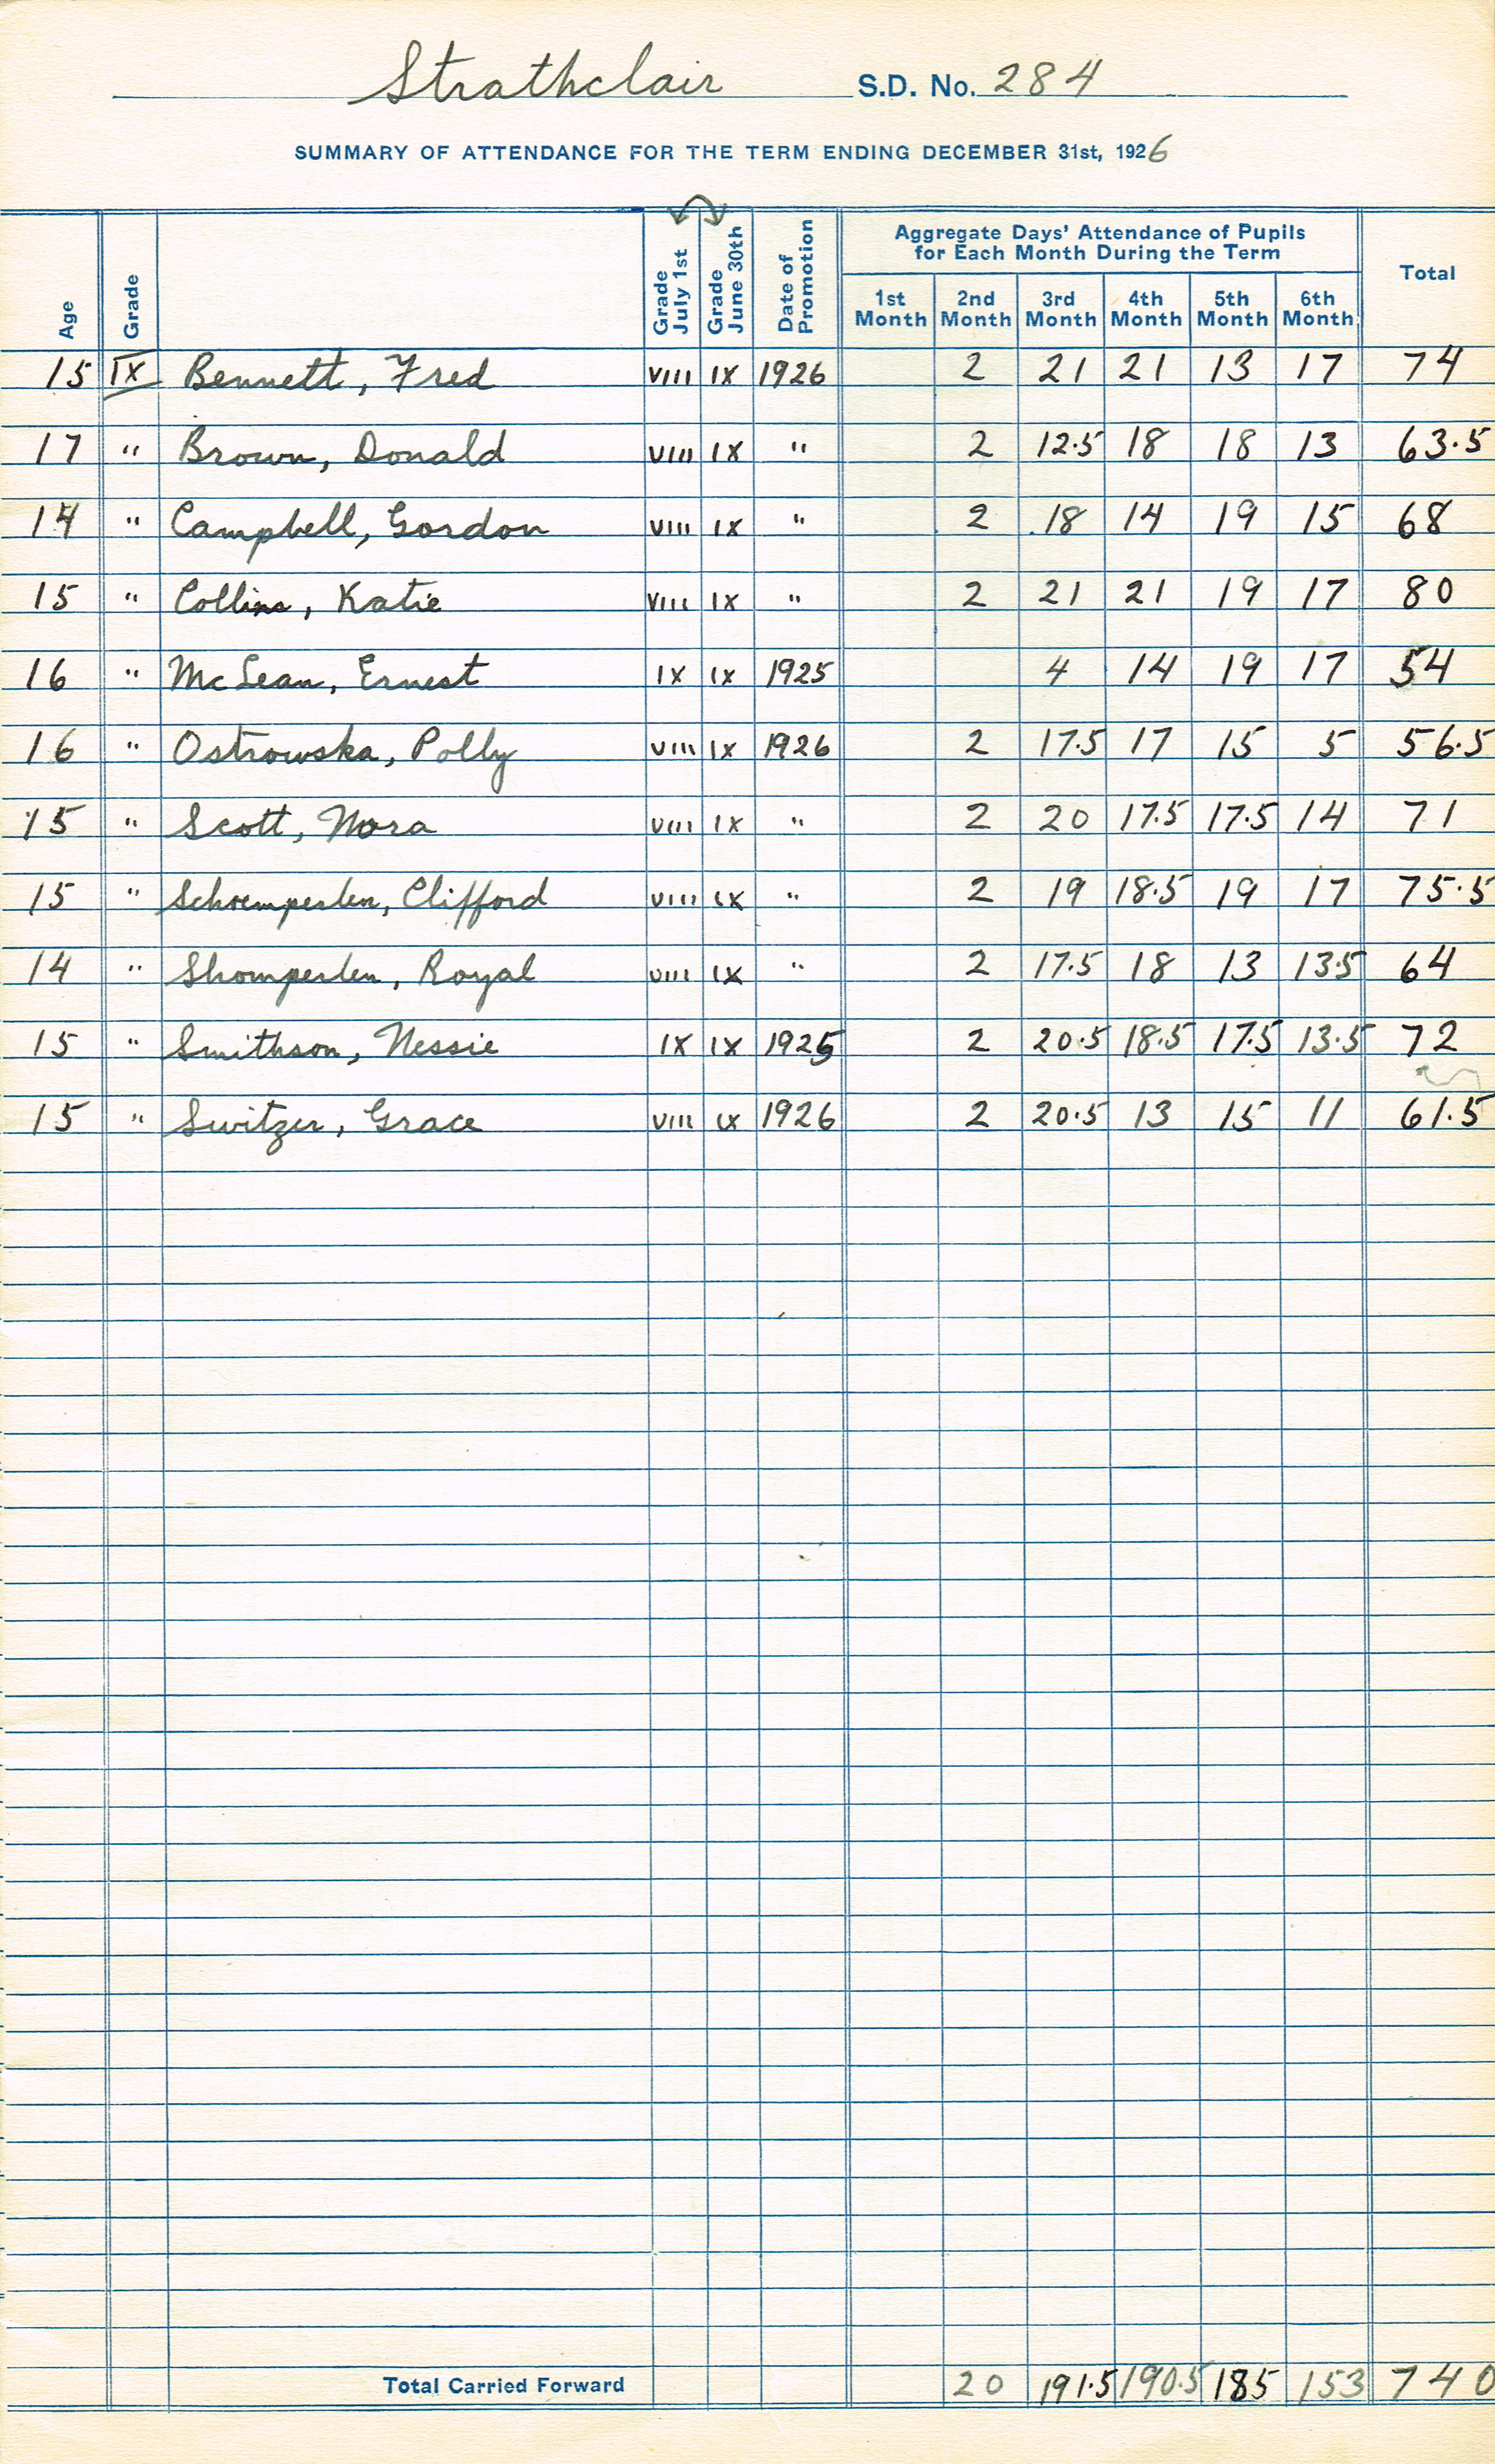 Strathclair S.D. No. 284
SUMMARY OF ATTENDANCE FOR THE TERM ENDING DECEMBER 31st, 1926
Age Grade Grade July 1st Grade June 30th Date of Promotion Aggregate Days' Attendance of Pupils for Each Month During the Term Total
1st Month 2nd Month 3rd Month 4th Month 5th Month 6th Month
15 IX Bennett, Fred VIII IX 1926 2 21 21 13 17 74
17 " Brown, Donald VIII IX " 2 12.5 18 18 13 63.5
14 " Campbell, Gordon VIII IX " 2 18 14 19 15 68
15 " Collins, Katie VIII IX " 2 21 21 19 17 80
16 " McLean, Ernest IX IX 1925 4 14 19 17 54
16 " Ostrowska, Polly VIII IX 1926 2 17.5 17 15 5 56.5
15 " Scott, Nora VIII IX " 2 20 17.5 17.5 14 71
15 " Schoemperlen, Clifford VIII IX " 2 19 18.5 19 17 75.5
14 " Shomperlen, Royal VIII IX " 2 17.5 18 13 13.5 64
15 " Smithson, Nessie IX IX 1925 2 20.5 18.5 17.5 13.5 72
15 " Switzer, Grace VIII IX 1926 2 20.5 13 15 11 61.5
Total Carried Forward 20 191.5 190.5 185 153 740